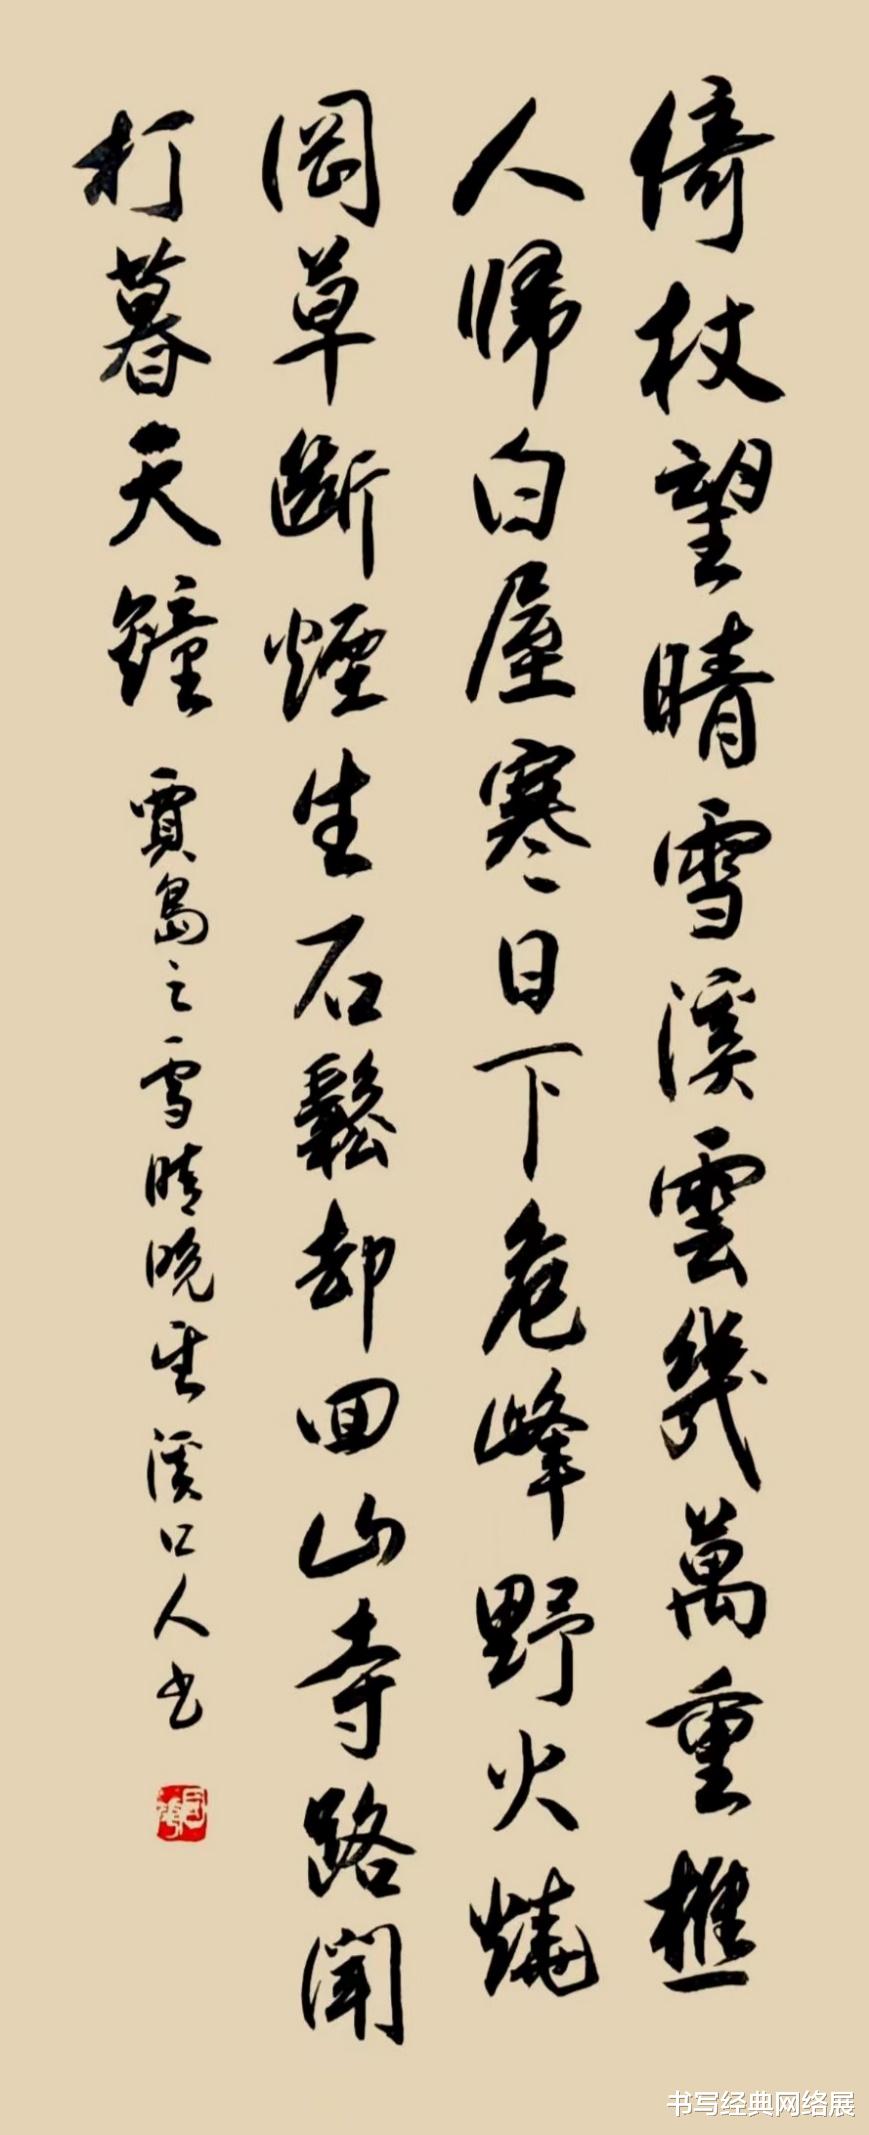 倚杖望晴雪溪雲幾萬重樵
人歸白屋寒日下危峰野火燒
岡草斷煙生石鬆却回山寺路聞
打暮天鐘
賈島之雪晴晚望溪口人书
书写经典网络展